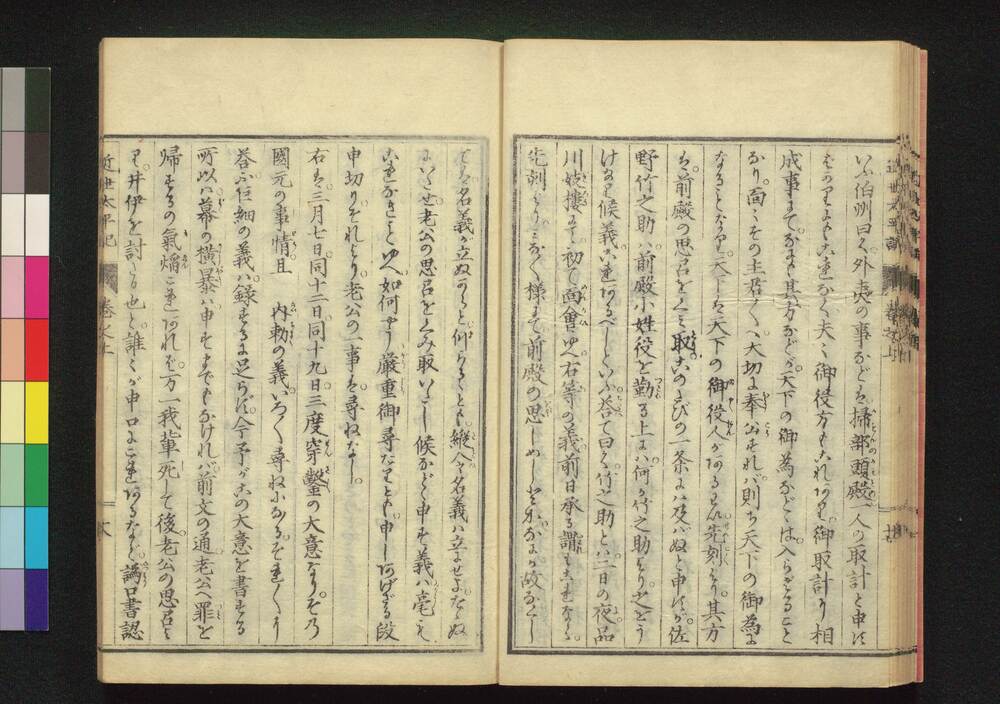 いふ伯州曰く外夷の事などは掃部頭殿一人の取計と申は
ばかりにもこれなく夫々御役方もこれあり御取計り相
成事にてなにも其方などが天下の御為などゝは入らざること
なり面々その主君へ大切に奉公すれバ則ち天下の御為に
なることなり天下は天下の御役人があるぞ先刻より其方
は前殿の思召をくみ取このたびの一条にハ及バぬと申せしが佐
野竹之助ハ前殿小姓役を勤る上にハ何か竹之助より之を
けたまり候義これあるべしといふ答て曰く竹之助とハ一日の夜品
川妓樓にて初て面會せり右等の義前日承る
先刻よりことごとく様にて前殿の思しめし
名義が立ぬからと仰らるゝとも縦へ名義ハ立にせよたゝぬ
にいたせ老公の思召をくみ取いたし候かどく申す義ハ毫も
これなきことゆへ如何やう嚴重御尋たりとも申しあげざる段
申切りそれより老公の一事は尋ねなし
右は三月七日同十二日同十九日三度穿鑿の大意なりその
國元の事情且内勅の義いろ〱尋ねになるそれ〱
答ふ巨細の義ハ録するに足らず今予がこの大意を書する
所以ハ幕の横暴ハ申すまでもなけれバ前文の通老公へ罪を
帰するの氣焰これあれば万一我輩死して後老公の思召に
て井伊を討たり也と誰々が申口にこれあるなど譌口書認
近世太平記
巻之上